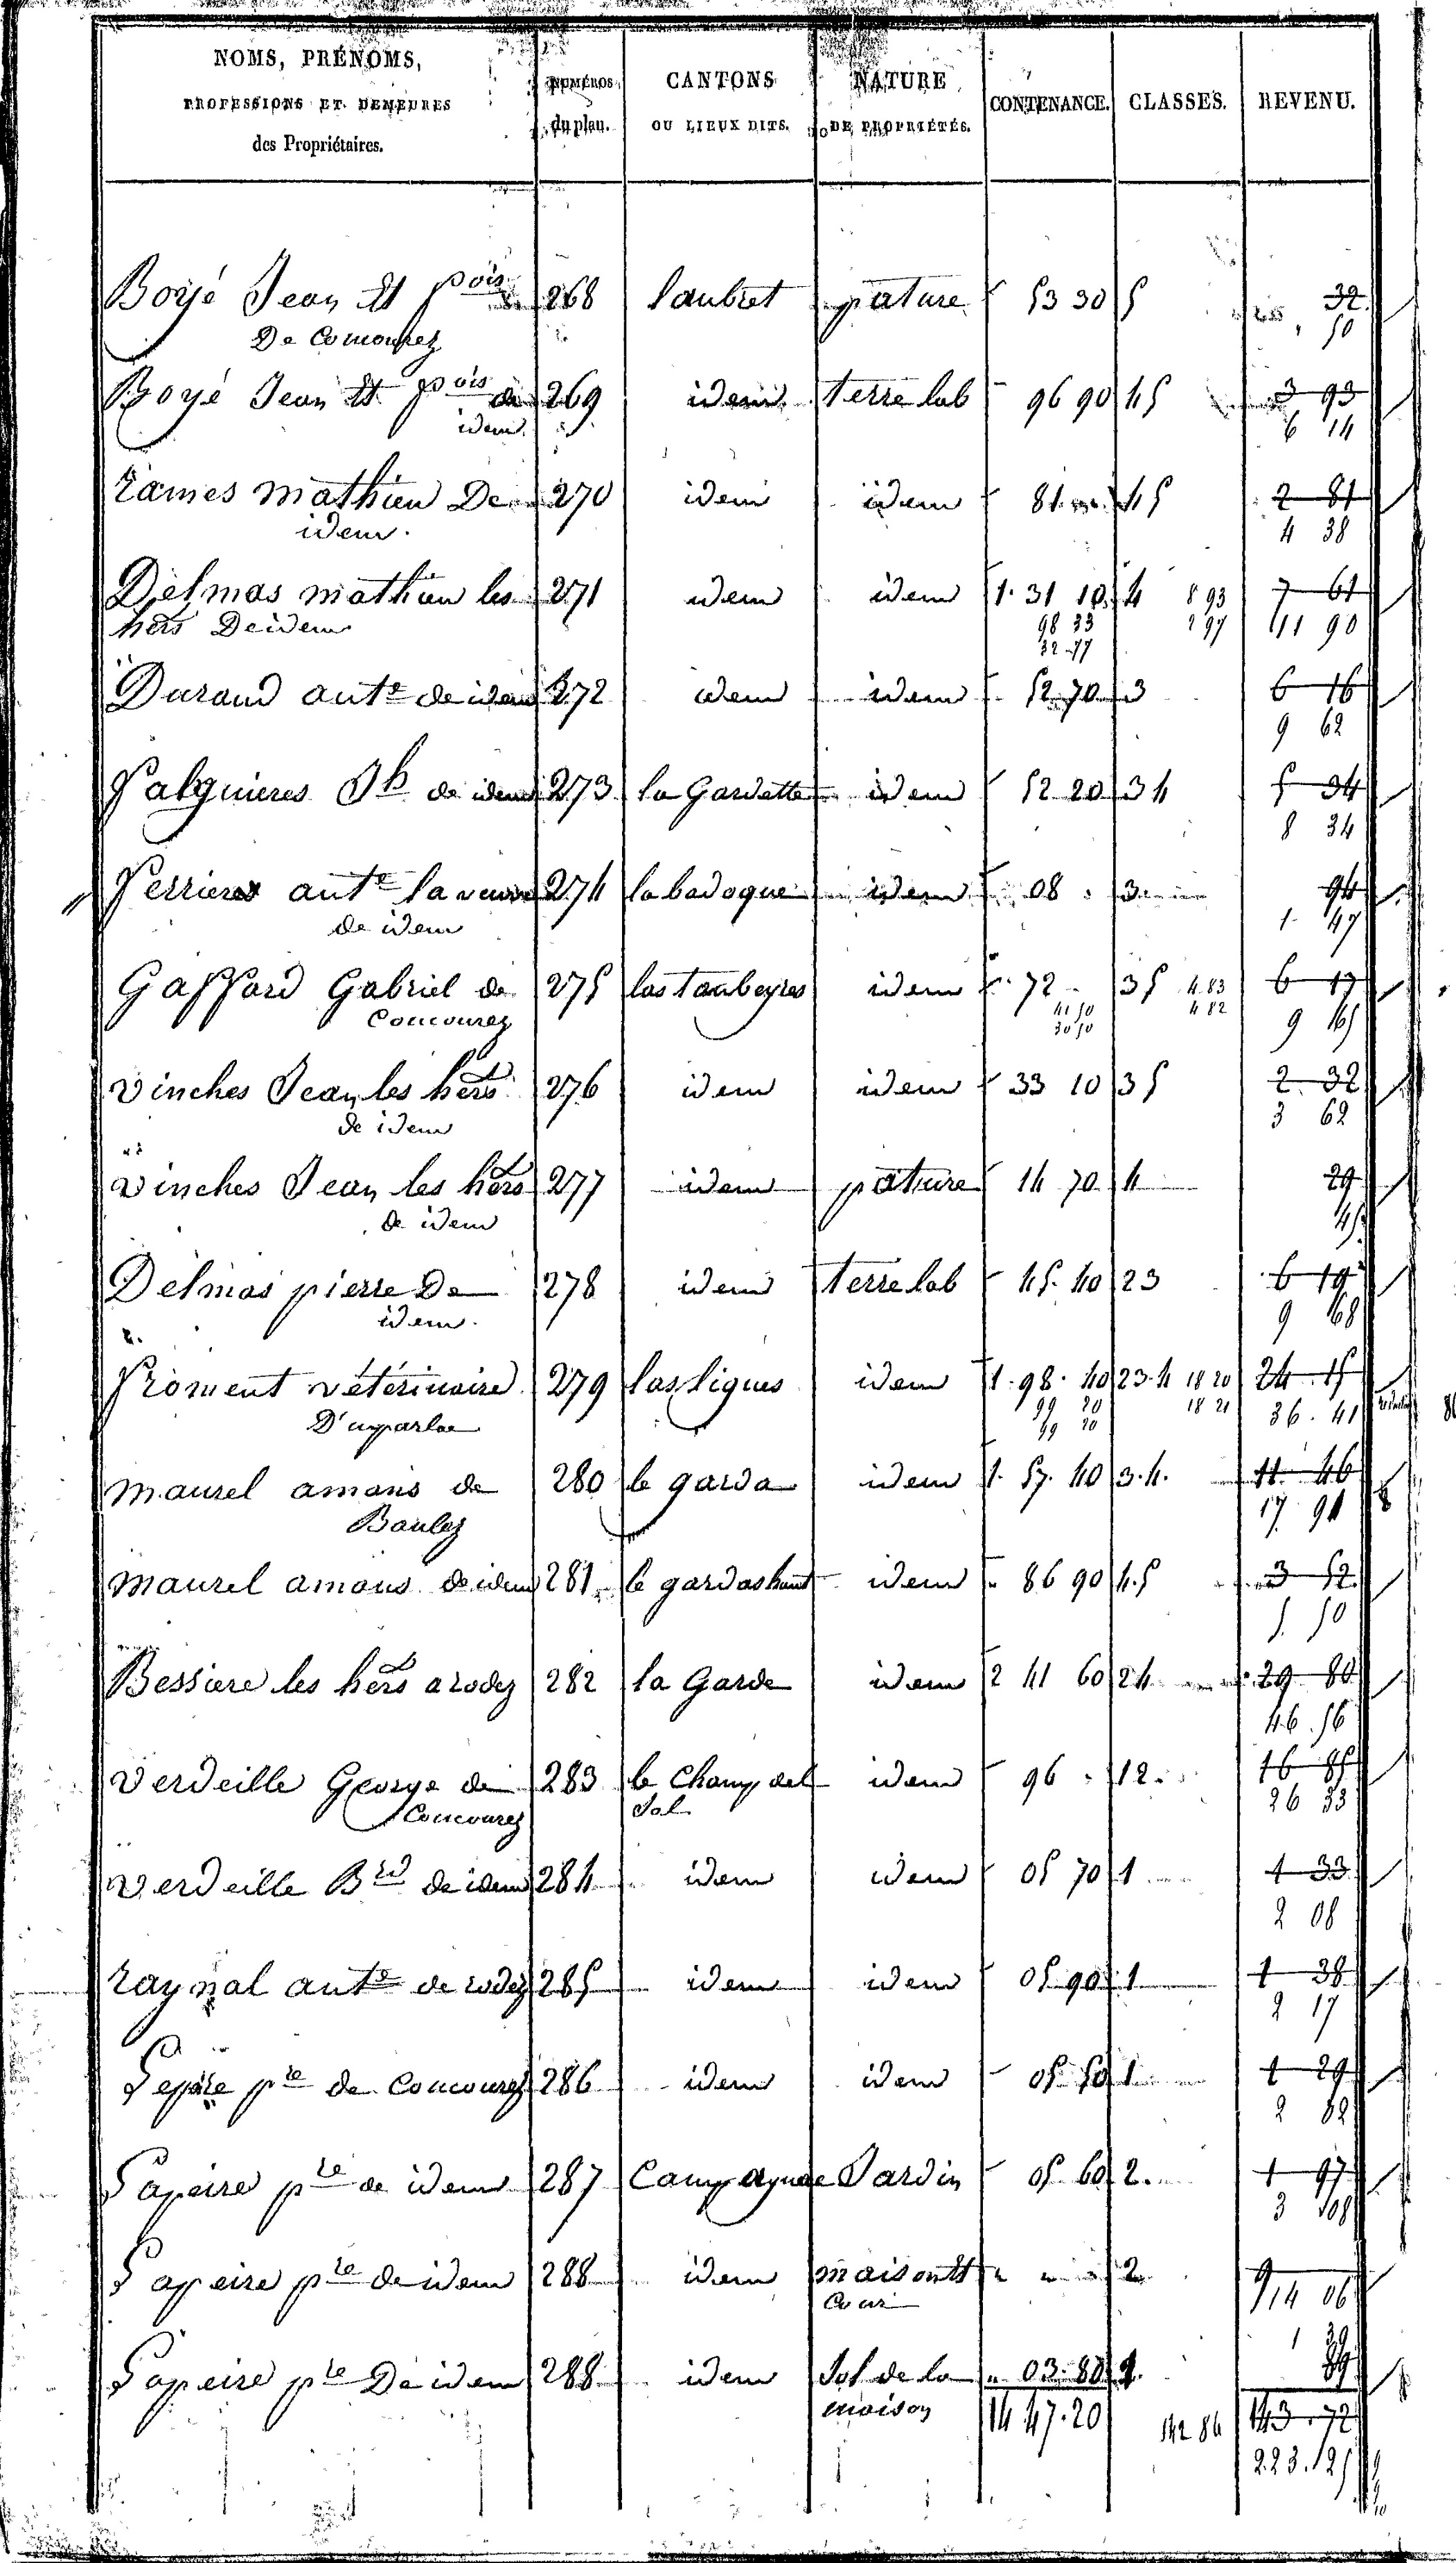 NOMS, PRÉNOMS, PROFESSIONS ET DEMEURES des Propriétaires. NUMÉROS du plan. CANTONS OU LIEUX DITS. NATURE DE PROPRIÉTÉS. CONTENANCE. CLASSES. REVENU.
Boyé Jean 268 pature 53 30 5 32
50
Boyé Jean 269 idem terre lab 96 90 45 3 93
idem 6 14
rames mathieu De 270 idem idem 81 45 2 81
idem 4 38
Delmas mathieu les 271 idem idem 1 31 10 4 8 93 7 61
hers De idem 98 33 2 97 11 90
32 77
Durand ante de idem 272 idem idem 52 70 3 6 16
9 62
de idem 273 la Gardette idem 52 20 34 5 34
8 34
ante la veuve 274 idem 08 3 94
de idem 1 47
Gaffard Gabriel de 275 las Taubeyres idem 72 35 4 83 6 17
Concourez 41 50 4 82 9 65
30 50
vinches Jean les hers 276 idem idem 33 10 35 2 32
de idem 3 62
vinches Jean les hers 277 idem pature 14 70 4 29
de idem 45
Delmas pierre De 278 idem terre lab 45 40 23 6 19
idem 9 68
froment vétérinaire 279 las ligues idem 1 98 40 23 4 18 20 24 15
99 20 18 21 36 41
99 20
maurel amans de 280 le garda idem 1 57 40 3 4 11 46
17 91
maurel amans de idem 281 idem 86 90 4 5 3 52
5 50
Bessiere les hers a rodez 282 la Garde idem 2 41 60 24 29 80
46 56
verdeille George de 283 le Champ del idem 96 12 16 85
Concourez Sol 26 33
verdeille Brd de idem 284 idem idem 05 70 1 1 33
2 08
raynal ante de rodez 285 idem idem 05 90 1 1 38
2 17
pre de Concourez 286 idem idem 05 50 1 1 29
2 02
Lapeire pre de idem 287 Jardin 05 60 2 1 97
3 08
Lapeire pre de idem 288 idem maison et 2 9
Cour 14 06
1 39
Lapeire pre De idem 288 idem Sol de la 03 80 89
maison 14 47 20 142 86 143 72
223 25